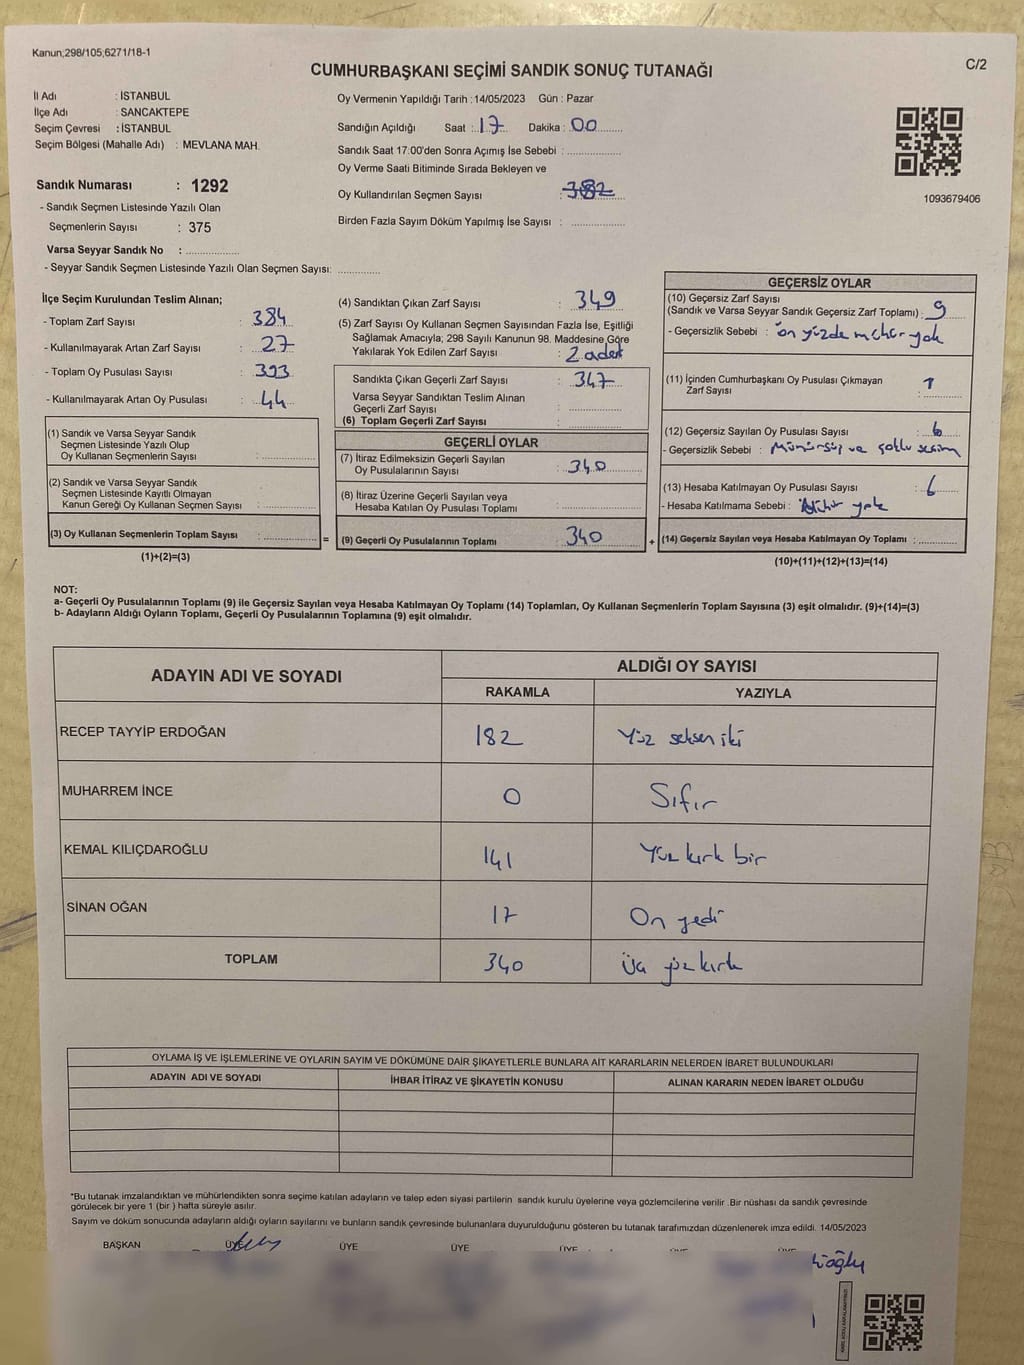 Kanun;298/105;6271/18-1
C/2
CUMHURBAŞKANI SEÇİMİ SANDIK SONUÇ TUTANAĞI
İl Adı : İSTANBUL
İlçe Adı : SANCAKTEPE
Seçim Çevresi : İSTANBUL
Seçim Bölgesi (Mahalle Adı) : MEVLANA MAH.
Sandık Numarası : 1292
- Sandık Seçmen Listesinde Yazılı Olan
Seçmenlerin Sayısı : 375
Varsa Seyyar Sandık No : ..................
- Seyyar Sandık Seçmen Listesinde Yazılı Olan Seçmen Sayısı: ..............
Oy Vermenin Yapıldığı Tarih : 14/05/2023 Gün : Pazar
Sandığın Açıldığı Saat : 17 Dakika : 00
Sandık Saat 17:00'den Sonra Açımış İse Sebebi : ..................
Oy Verme Saati Bitiminde Sırada Bekleyen ve
Oy Kullandırılan Seçmen Sayısı : 382
Birden Fazla Sayım Döküm Yapılmış İse Sayısı : ..................
1093679406
İlçe Seçim Kurulundan Teslim Alınan;
- Toplam Zarf Sayısı : 384
- Kullanılmayarak Artan Zarf Sayısı : 27
- Toplam Oy Pusulası Sayısı : 393
- Kullanılmayarak Artan Oy Pusulası : 44
(1) Sandık ve Varsa Seyyar Sandık
Seçmen Listesinde Yazılı Olup
Oy Kullanan Seçmenlerin Sayısı : ..................
(2) Sandık ve Varsa Seyyar Sandık
Seçmen Listesinde Kayıtlı Olmayan
Kanun Gereği Oy Kullanan Seçmen Sayısı : ..................
(3) Oy Kullanan Seçmenlerin Toplam Sayısı : .................. =
(1)+(2)=(3)
(4) Sandıktan Çıkan Zarf Sayısı : 349
(5) Zarf Sayısı Oy Kullanan Seçmen Sayısından Fazla İse, Eşitliği
Sağlamak Amacıyla; 298 Sayılı Kanunun 98. Maddesine Göre
Yakılarak Yok Edilen Zarf Sayısı : 2 adet
Sandıkta Çıkan Geçerli Zarf Sayısı : 347
Varsa Seyyar Sandıktan Teslim Alınan
Geçerli Zarf Sayısı : ..................
(6) Toplam Geçerli Zarf Sayısı : ..................
GEÇERLİ OYLAR
(7) İtiraz Edilmeksizin Geçerli Sayılan
Oy Pusulalarının Sayısı : 340
(8) İtiraz Üzerine Geçerli Sayılan veya
Hesaba Katılan Oy Pusulası Toplamı : ..................
(9) Geçerli Oy Pusulalarının Toplamı : 340 +
GEÇERSİZ OYLAR
(10) Geçersiz Zarf Sayısı
(Sandık ve Varsa Seyyar Sandık Geçersiz Zarf Toplamı) : 9
- Geçersizlik Sebebi : ön yüzde mühür yok
(11) İçinden Cumhurbaşkanı Oy Pusulası Çıkmayan
Zarf Sayısı : 1
(12) Geçersiz Sayılan Oy Pusulası Sayısı : 6
- Geçersizlik Sebebi : Mühürsüz ve çoklu seçim
(13) Hesaba Katılmayan Oy Pusulası Sayısı : 6
- Hesaba Katılmama Sebebi : Mühür yok
(14) Geçersiz Sayılan veya Hesaba Katılmayan Oy Toplamı : ............
(10)+(11)+(12)+(13)=(14)
NOT:
a- Geçerli Oy Pusulalarının Toplamı (9) ile Geçersiz Sayılan veya Hesaba Katılmayan Oy Toplamı (14) Toplamları, Oy Kullanan Seçmenlerin Toplam Sayısına (3) eşit olmalıdır. (9)+(14)=(3)
b- Adayların Aldığı Oyların Toplamı, Geçerli Oy Pusulalarının Toplamına (9) eşit olmalıdır.
ADAYIN ADI VE SOYADI
ALDIĞI OY SAYISI
RAKAMLA YAZIYLA
RECEP TAYYİP ERDOĞAN 182 Yüz seksen iki
MUHARREM İNCE 0 Sıfır
KEMAL KILIÇDAROĞLU 141 Yüz kırk bir
SİNAN OĞAN 17 On yedi
TOPLAM 340 Üç yüz kırk
OYLAMA İŞ VE İŞLEMLERİNE VE OYLARIN SAYIM VE DÖKÜMÜNE DAİR ŞİKAYETLERLE BUNLARA AİT KARARLARIN NELERDEN İBARET BULUNDUKLARI
ADAYIN ADI VE SOYADI İHBAR İTİRAZ VE ŞİKAYETİN KONUSU ALINAN KARARIN NEDEN İBARET OLDUĞU
*Bu tutanak imzalandıktan ve mühürlendikten sonra seçime katılan adayların ve talep eden siyasi partilerin sandık kurulu üyelerine veya gözlemcilerine verilir .Bir nüshası da sandık çevresinde
görülecek bir yere 1 (bir ) hafta süreyle asılır.
Sayım ve döküm sonucunda adayların aldığı oyların sayılarını ve bunların sandık çevresinde bulunanlara duyurulduğunu gösteren bu tutanak tarafımızdan düzenlenerek imza edildi. 14/05/2023
BAŞKAN ÜYE ÜYE ÜYE ÜYE ÜYE ÜYE